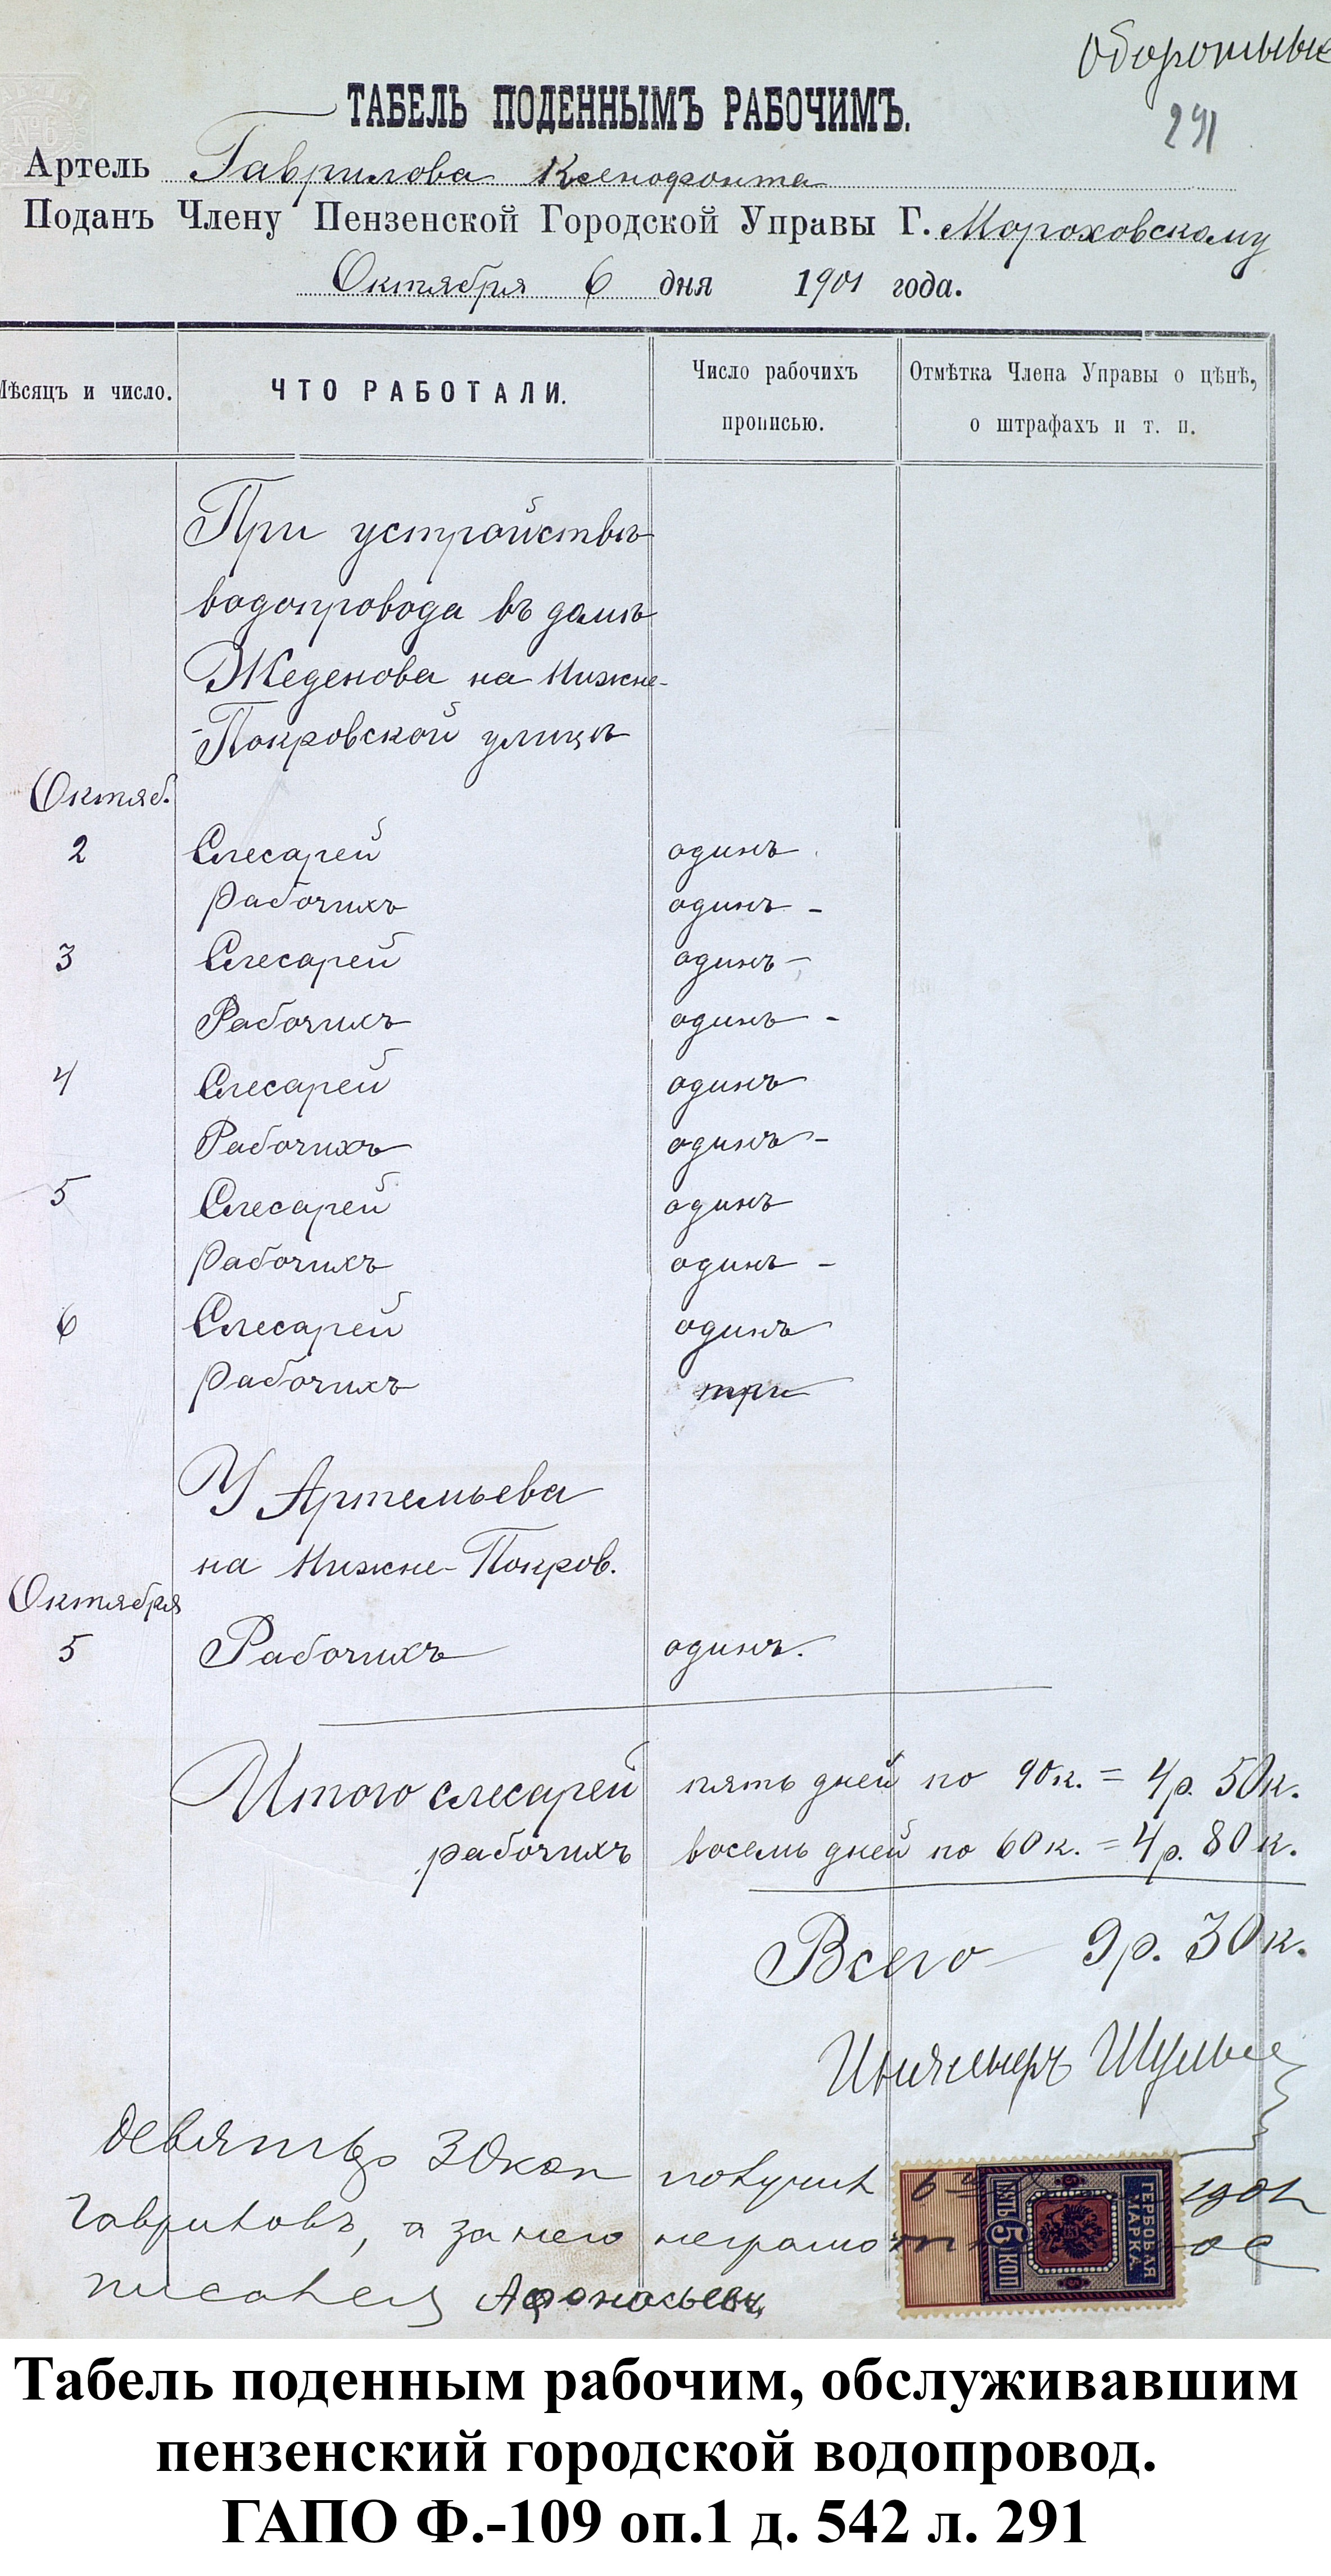 Оборотные
291
ТАБЕЛЬ ПОДЕННЫМЪ РАБОЧИМЪ.
Артель Гаврилова Ксенофонта
Поданъ Члену Пензенской Городской Управы Г. Мороховскому
Октября 6 дня 1901 года.
Мѣсяцъ и число. ЧТО РАБОТАЛИ. Число рабочихъ прописью. Отмѣтка Члена Управы о цѣнѣ, о штрафахъ и т. п.
При устройствѣ
водопровода въ домѣ
Жеденова на Нижне-
-Покровской улицѣ
Октяб.
2 Слесарей одинъ
Рабочихъ одинъ -
3 Слесарей одинъ -
Рабочихъ одинъ -
4 Слесарей одинъ
Рабочихъ одинъ -
5 Слесарей одинъ
Рабочихъ одинъ -
6 Слесарей одинъ
Рабочихъ три
У Артемьева
на Нижне-Покров.
Октября
5 Рабочихъ одинъ.
Итого слесарей пять дней по 90 к. = 4 р. 50 к.
рабочихъ восемь дней по 60 к. = 4 р. 80 к.
Всего 9 р. 30 к.
Инженеръ
Девять р 30 коп получил 6 1901
Гавриловъ, а за него неграмот
Афонасьевъ
ГЕРБОВАЯ
МАРКА
5
ПЯТЬ КОП
Табель поденным рабочим, обслуживавшим
пензенский городской водопровод.
ГАПО Ф.-109 оп.1 д. 542 л. 291